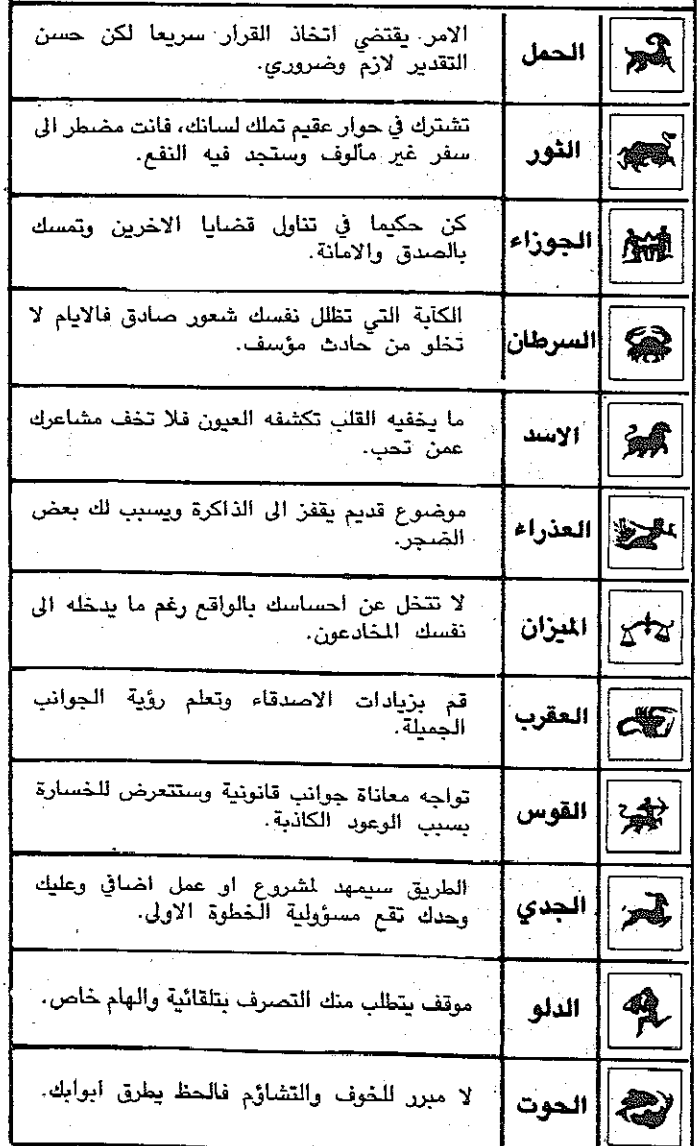 الحمل
الامر يقتضي اتخاذ القرار سريعا لكن حسن
التقدير لازم وضروري.
الثور
تشترك في حوار عقيم تملك لسانك، فانت مضطر الى
سفر غير مألوف وستجد فيه النفع.
الجوزاء
كن حكيما في تناول قضايا الاخرين وتمسك
بالصدق والامانة.
السرطان
الكآبة التي تظلل نفسك شعور صادق فالايام لا
تخلو من حادث مؤسف.
الاسد
ما يخفيه القلب تكشفه العيون فلا تخف مشاعرك
عمن تحب.
العذراء
موضوع قديم يقفز الى الذاكرة ويسبب لك بعض
الضجر.
الميزان
لا تتخل عن احساسك بالواقع رغم ما يدخله الى
نفسك المخادعون.
العقرب
قم بزيادات الاصدقاء وتعلم رؤية الجوانب
الجميلة.
القوس
تواجه معاناة جوانب قانونية وستتعرض للخسارة
بسبب الوعود الكاذبة.
الجدي
الطريق سيمهد لمشروع او عمل اضافي وعليك
وحدك تقع مسؤولية الخطوة الاولى.
الدلو
موقف يتطلب منك التصرف بتلقائية والهام خاص.
الحوت
لا مبرر للخوف والتشاؤم فالحظ يطرق ابوابك.